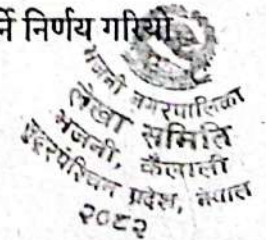 र्ने निर्णय गरियो
भजनी नगरपालिका
लेखा समिति
भजनी, कैलाली
सुदूरपश्चिम प्रदेश, नेपाल
२०८२